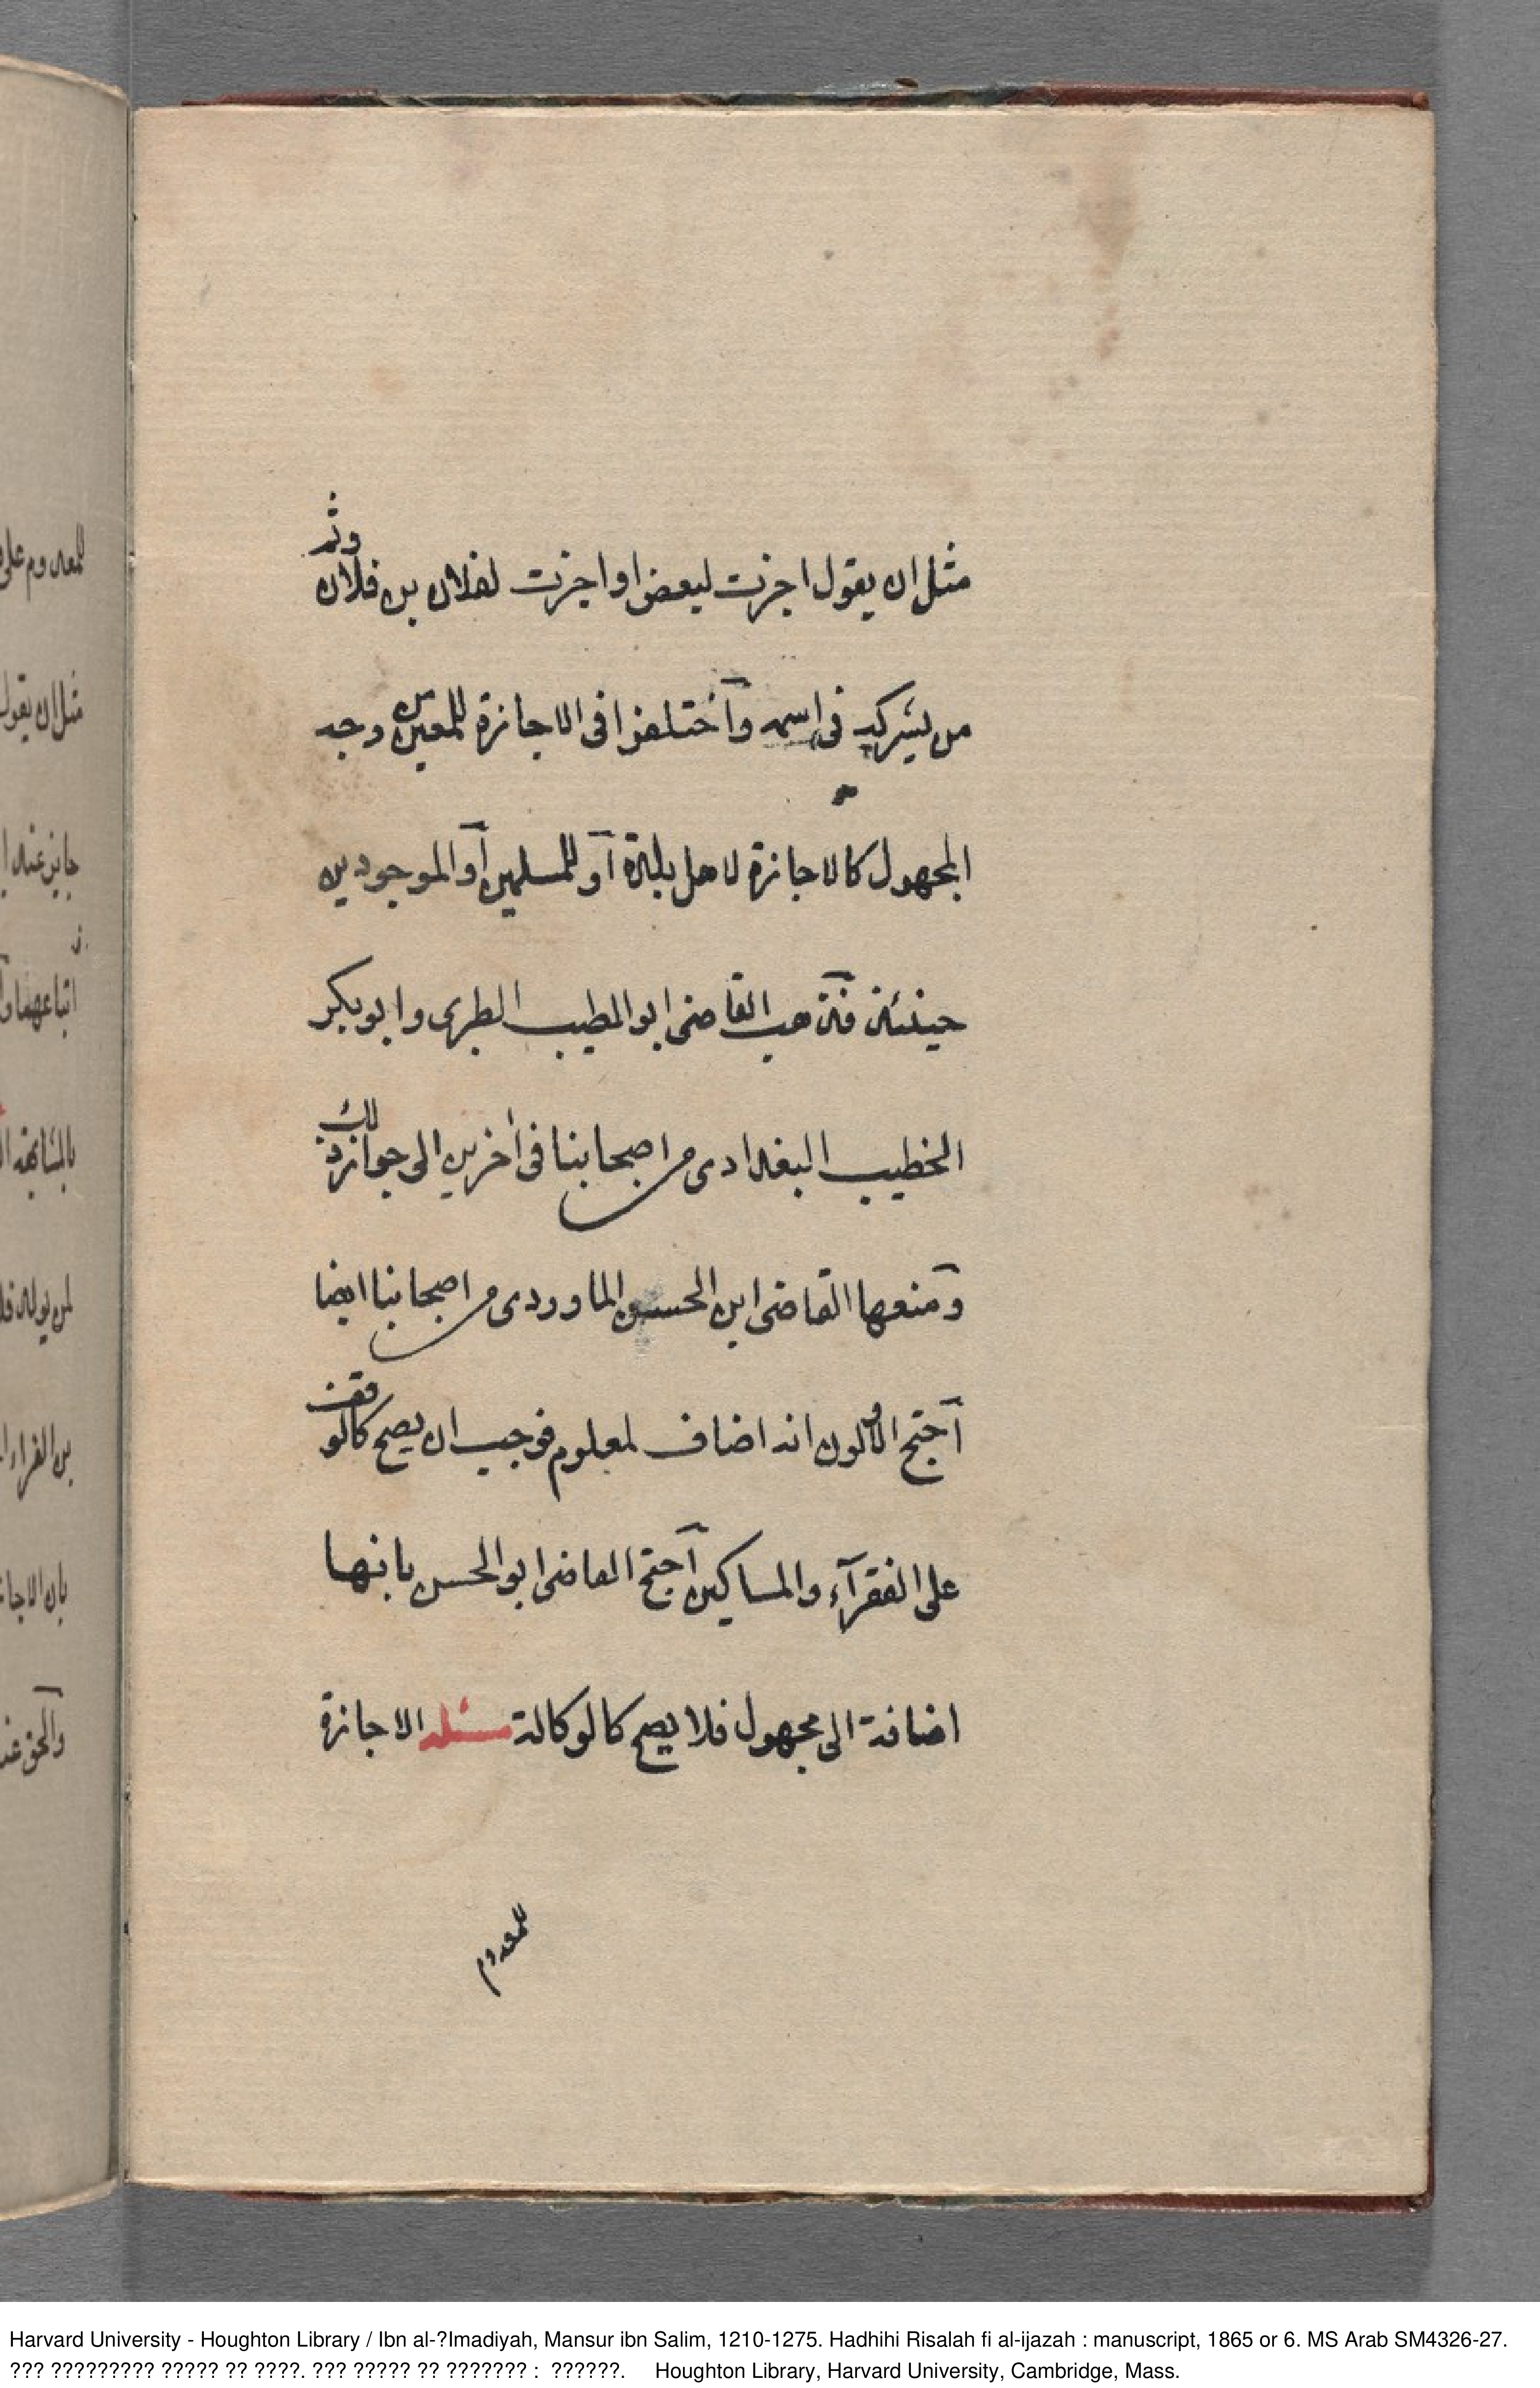 مثل ان يقول اجزت لبعض او اجزت لفلان بن فلان وثم
من يشركه في اسمه واختلفوا في الاجازة للمعين من وجه
المجهول كالاجازة لاهل بلدة أو للمسلمين أو الموجودين
حينئذ فذهب القاضى ابو الطيب الطبرى وابو بكر
الخطيب البغدادى من اصحابنا فى أخرين الى جواز ذلك
ومنعها القاضى ابن الحسن الماوردى من اصحابنا ايضا
أحتج الأولون انه اضاف لمعلوم فوجب ان يصح كالوقف
على الفقرآء والمساكين أحتج القاضى ابو الحسن بانها
اضافة الى مجهول فلا يصح كالوكالة مسئله الاجازة
للمعدوم
Harvard University - Houghton Library / Ibn al-?Imadiyah, Mansur ibn Salim, 1210-1275. Hadhihi Risalah fi al-ijazah : manuscript, 1865 or 6. MS Arab SM4326-27.
??? ????????? ????? ?? ????. ??? ????? ?? ??????? : ??????. Houghton Library, Harvard University, Cambridge, Mass.